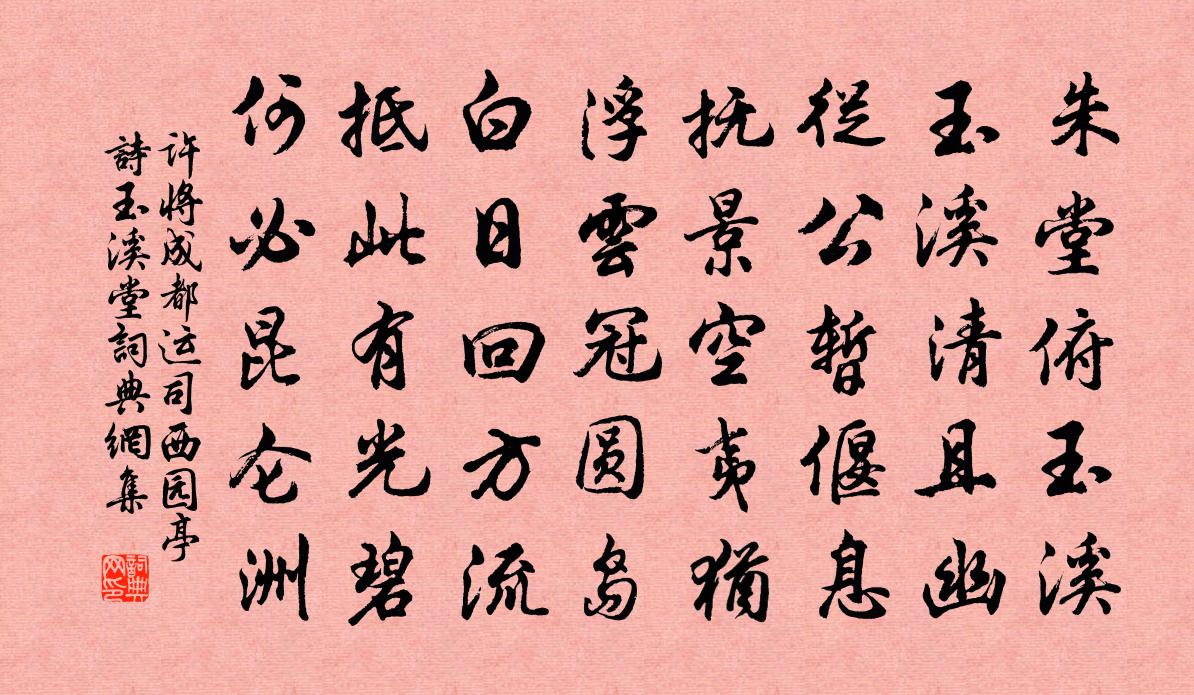 朱堂俯玉溪
玉溪清且幽
従公暫偃息
抚景空夷猶
浮雲冠圆岛
白日回方流
抵此有光碧
何必昆仑洲
许将成都运司西园亭
詩玉溪堂詞典網集
詞典网印